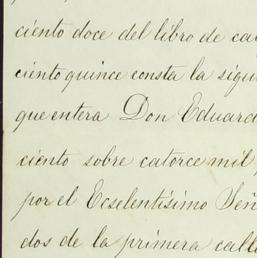 ciento doce del libro de ca
ciento quince consta la sigu
que entera Don Eduard
ciento sobre catorce mil
por el Ecselentísimo Señ
dos de la primera calle